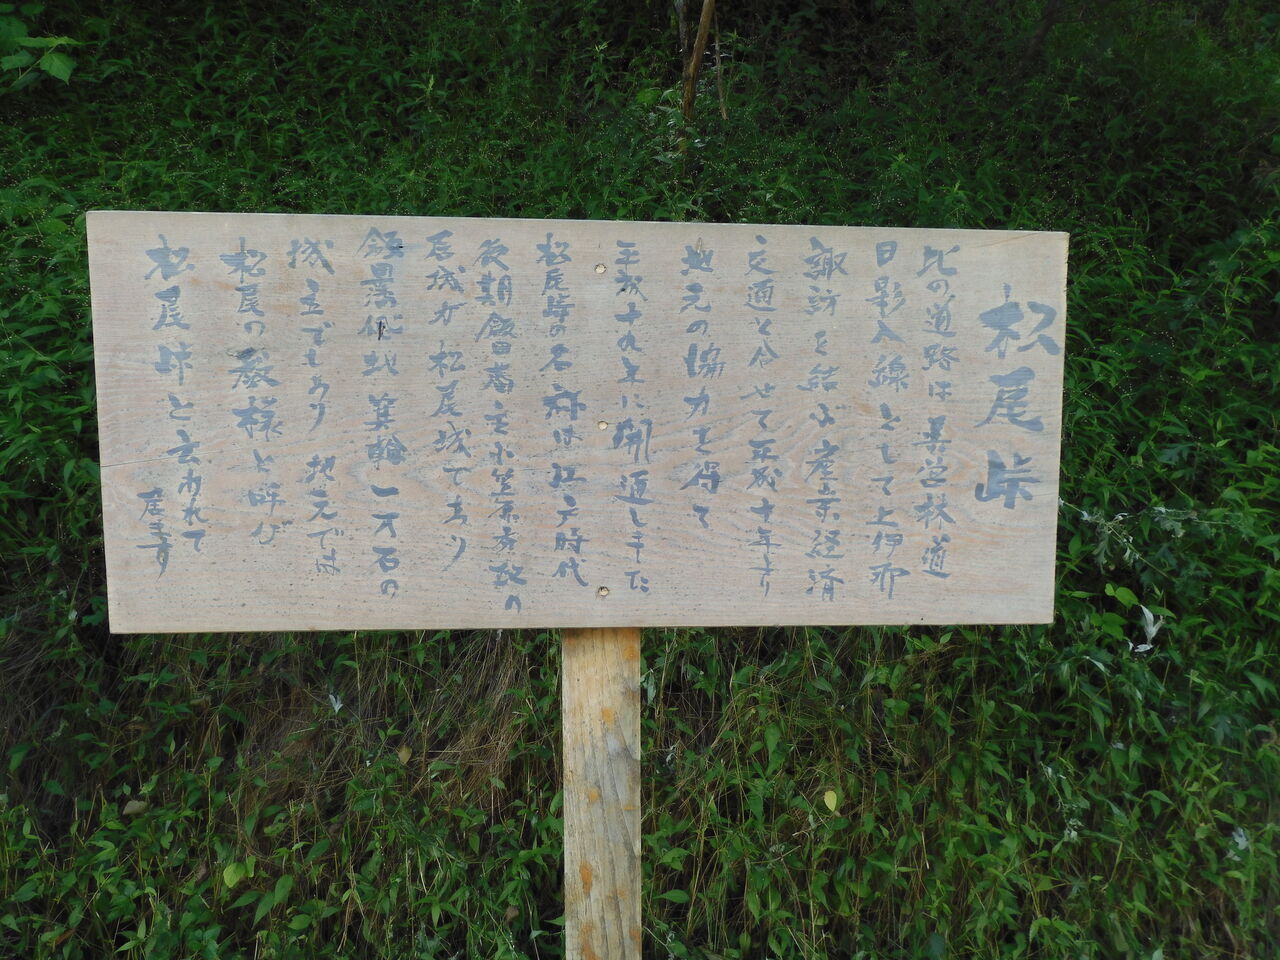 松尾峠
此の道路は県営林道
日影入線として上伊那
諏訪を結ぶ産業経済
交通と合せて平成十年より
地元の協力を得て
平成十九年に開通しました
松尾峠の名称は江戸時代
後期飯田藩主小笠原
居城が松尾城であり
箕輪一万石の
城主でもあり地元では
松尾の殿様と呼び
松尾峠と云われて
居ます